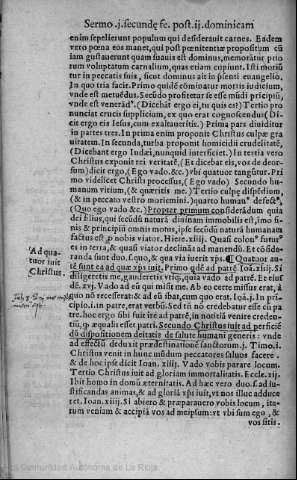 Sermo .j. secundę fe. post .ij. dominicam
enim sepelierunt populum qui desiderauit carnes. Eadem
vero pœna eos manet, qui post pœnitentiæ propositum cũ
iam gustauerunt quam suauis est dominus, memorãtur prio
rum voluptatum carnalium, quas etiam cupiunt. Isti moriũ
tur in peccatis suis, sicut dominus ait in pṡenti euangelio.
In quo tria facit. Primo quidẽ cõminatur mortis iudicium,
vnde est metuẽdus. Secũdo profitetur se esse mũdi principiũ,
vnde est venerãd⁹. (Dicebãt ergo ei, tu quis es?) Tertio pro
nunciat crucis supplicium, ex quo erat cognoscendus (Di-
cit ergo eis Iesus, cum exaltaueritis.) Prima pars diuiditur
in partes tres. In prima enim proponit Christus culpæ gra
uitatem. In secunda, turba proponit homicidij crudelitatẽ,
(Dicebant ergo Iudæi, nunquid interficiet.) In tertia vero
Christus exponit rei veritatẽ, (Et dicebat eis, vos de deor-
sum) dicit ergo, (Ego vado. &c.) vbi quatuor tangũtur. Pri
mo videlicet Christi processus, (Ego vado) Secundo hu-
manum vitium, (& quæritis me.) Tertio culpę dispẽdium,
(& in peccato vestro moriemini.) quarto human⁹ defect⁹.
(Quo ego vado &c.) Propter primum considerãdum quia
dei filius, qui secũdũ naturã diuinam immobilis est, imo fi-
nis & principiũ omnis motus, ipse secũdũ naturã humanam
factus est nobis viator. Hiere. xiiij. Quasi colon⁹ futur⁹
es in terra, & quasi viator declinãs ad manendũ. Et cõside-
randa sunt duo. s. quo, & qua via iuerit xp̃s. ¶ Quatuor au-
tẽ sunt ea ad quæ xp̃s iuit. Primo qdẽ ad patrẽ Ioã. xiiij. Si
diligeretis me, gauderetis vtiq;, quia vado ad patrẽ. Et eiusdẽ
xvj. Vado ad eũ qui misit me. Ab eo certe missus erat, à
quo nũ recesserat: & ad eũ ibat, cum quo erat. Ioã. j. In prĩ-
cipio. i. in patre, erat verbũ. Sed tñ nõ credebatur esse cũ pa
tre, hoc ergo sibi fuit ire ad patrẽ, in notitiã venire credẽn
tiũ, q̃ æqualis esset patri. Secundo Christus iuit ad perficiẽ
dũ dispositionem deitatis de salute humani generis: vnde
ad effectũ deduxit prædestinationẽ sanctorum. j. Timo. j.
Christus venit in hunc mũdum peccatores saluos facere.
& de hoc ip̃s dicit Ioan. xiiij. Vado vobis parare locum.
Tertio Christus iuit ad gloriam immortalitatis. Eccle. xij.
Ibit homo in domũ æternitatis. Ad hæc vero duo. s. ad iu-
stificandas animas, & ad gloriã xp̃s iuit, vt nos illuc adduce
ret. Ioan. xiiij. Si abiero & præparauero vobis locum, ite-
rum veniam & accipiã vos ad meipsum: vt vbi sum ego, &
vos sitis.
Ad qua-
tuor iuit
Christus.
Comunidad Autónoma de La Rioja